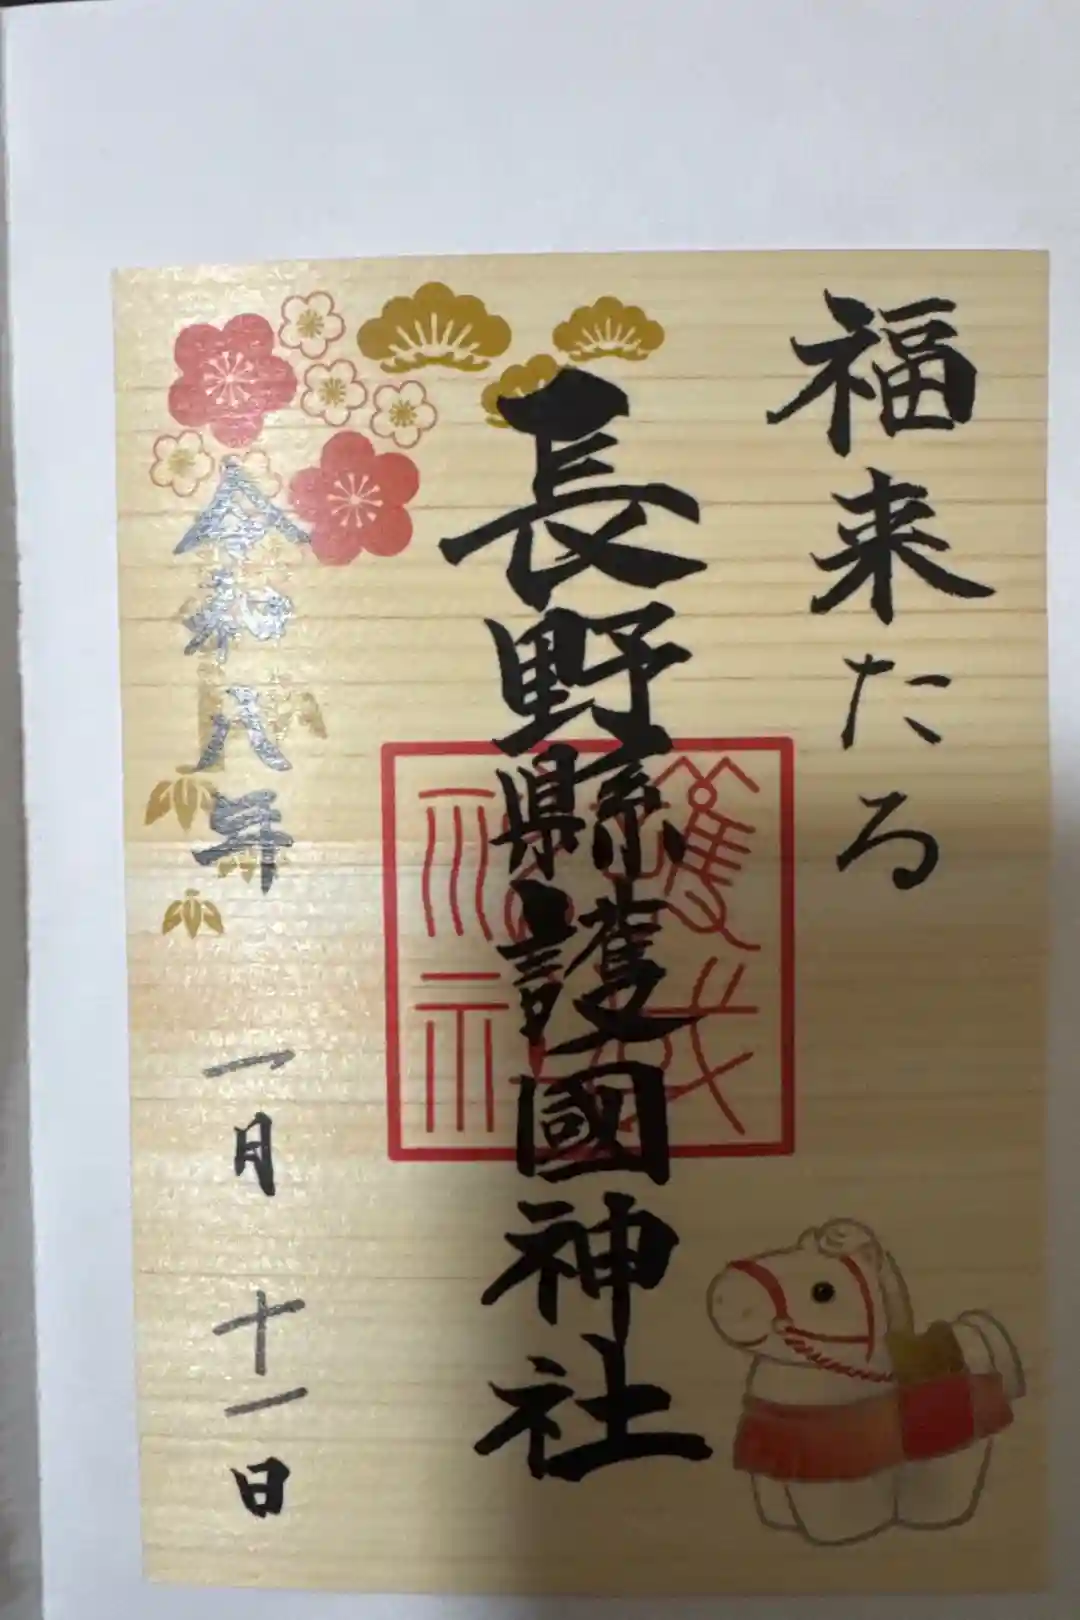 福来たる
長野縣護國神社
令和八年 一月 十一日